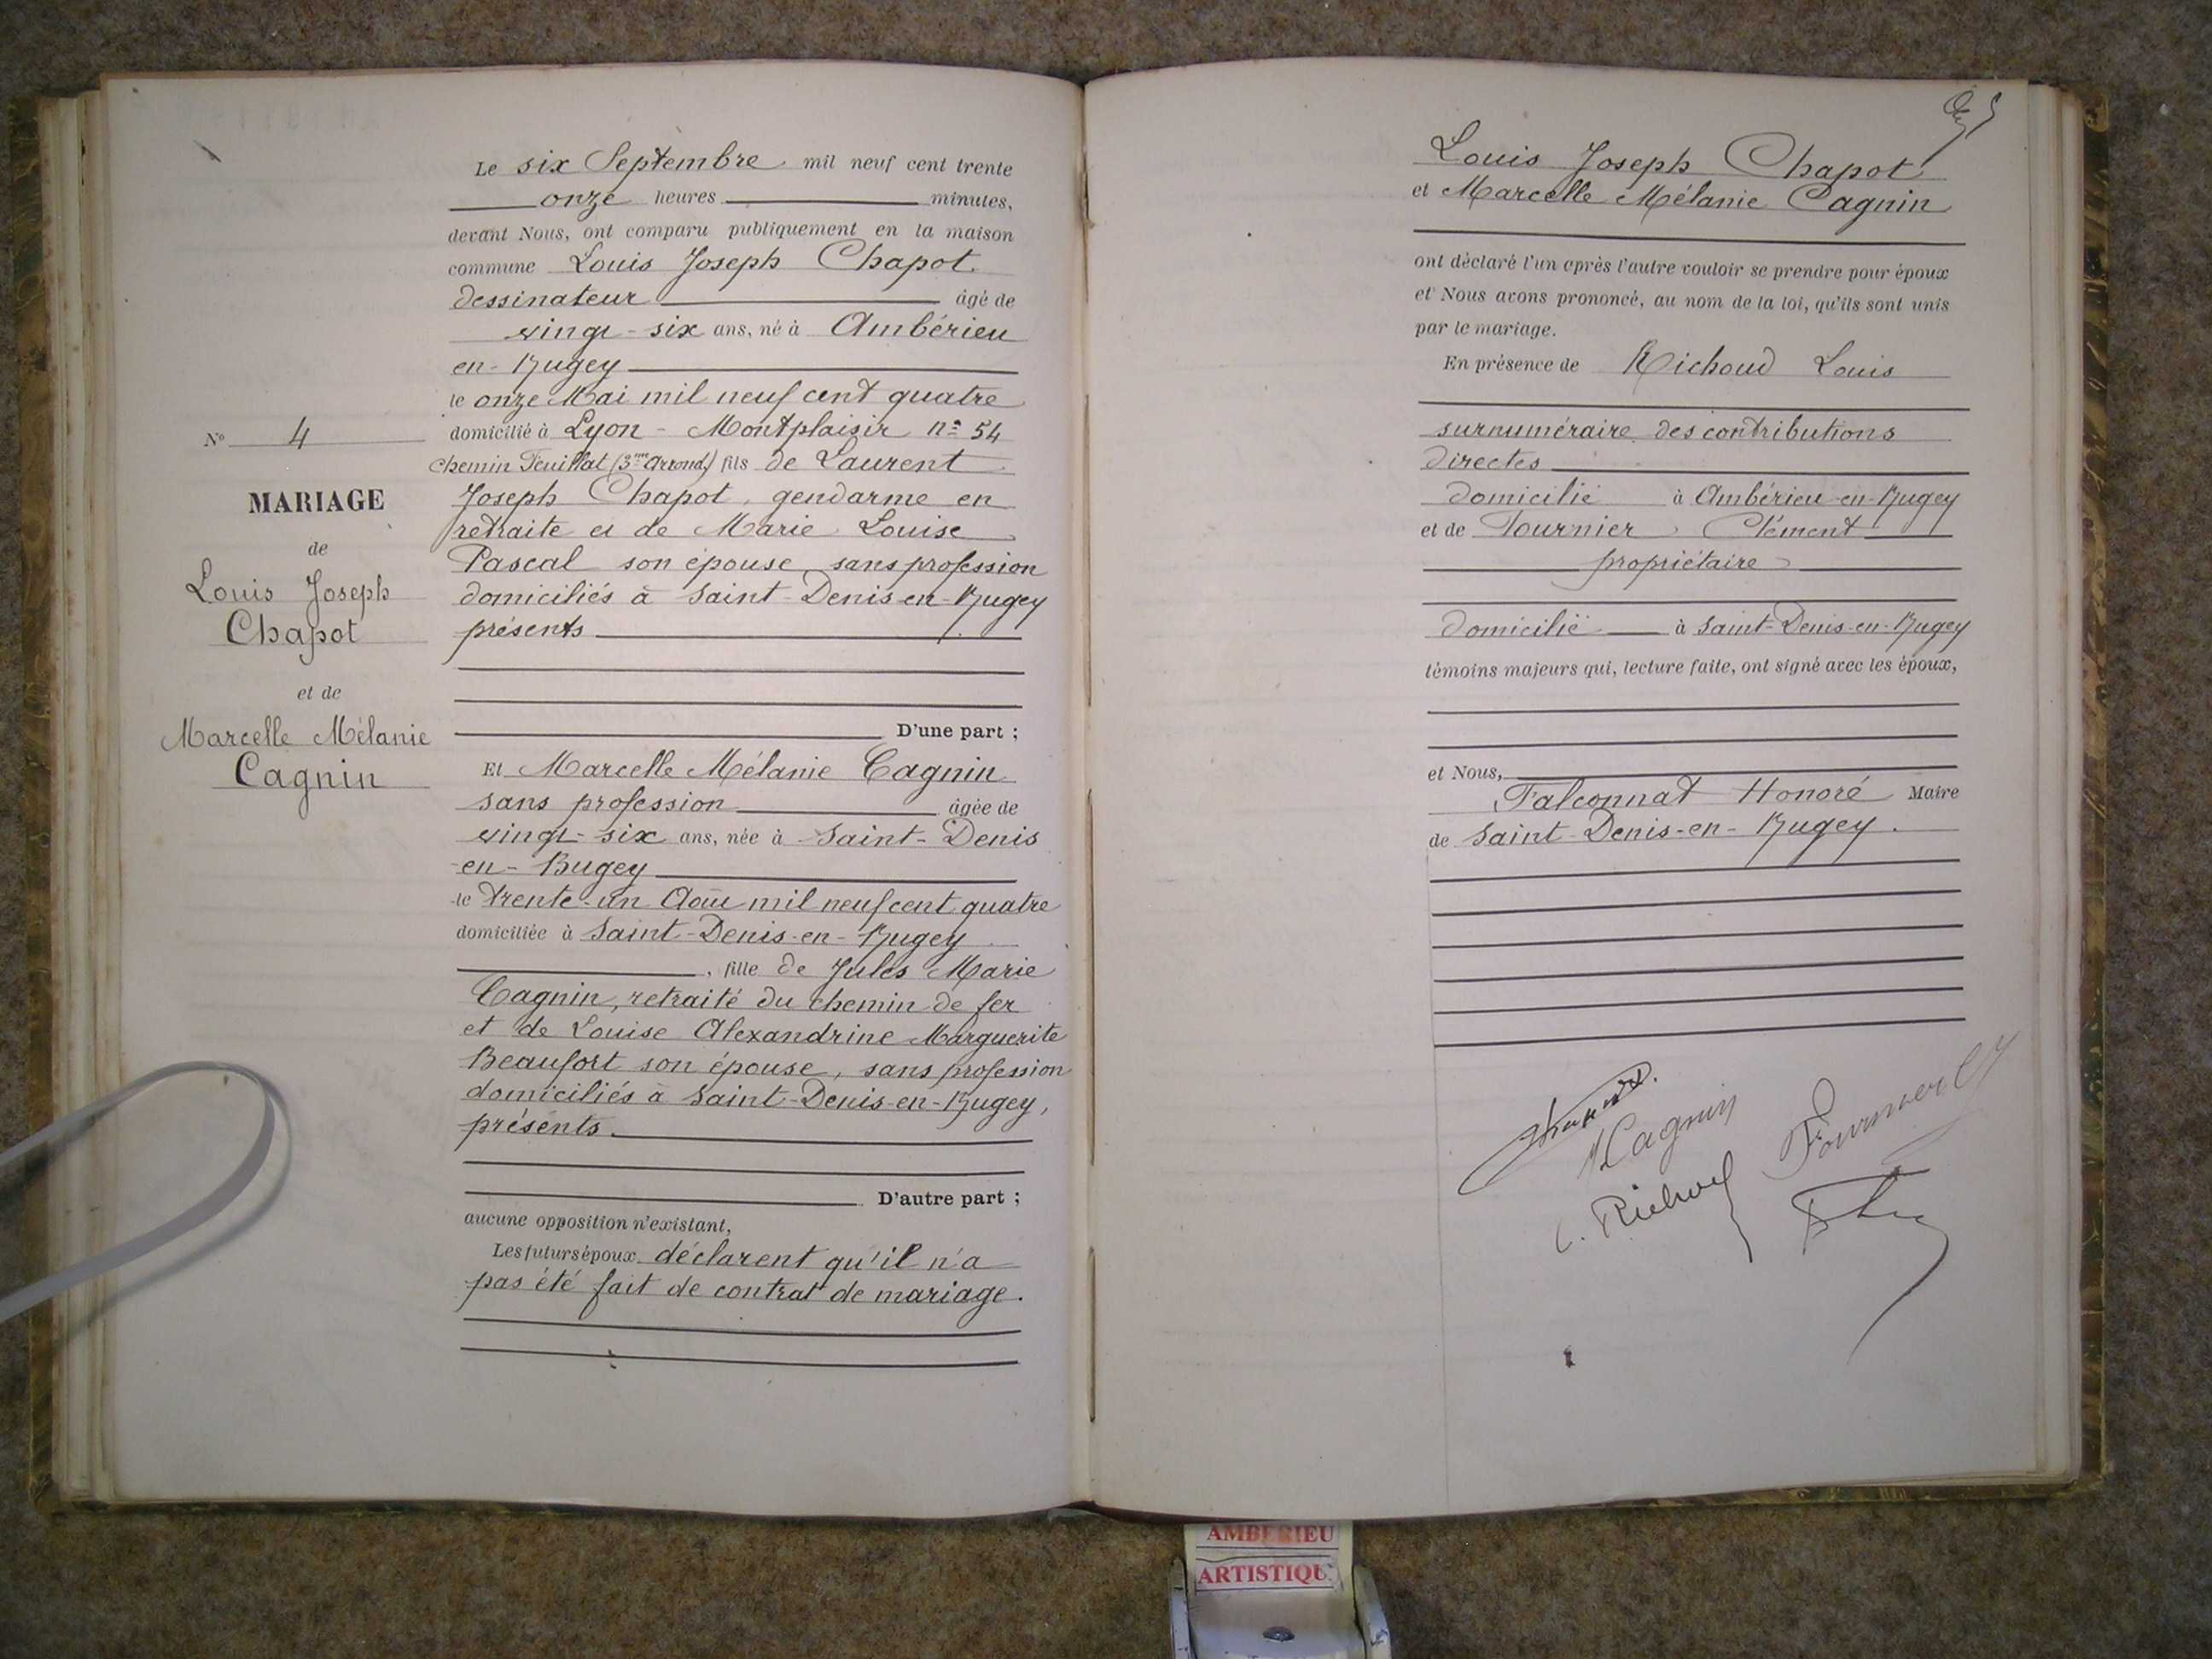 N° 4
MARIAGE
de
Louis Joseph
Chapot
et de
Marcelle Mélanie
Cagnin
Le six Septembre mil neuf cent trente
onze heures minutes,
devant Nous, ont comparu publiquement en la maison
commune Louis Joseph Chapot.
dessinateur âgé de
vingt-six ans, né à Ambérieu
en-Bugey
le onze Mai mil neuf cent quatre
domicilié à Lyon - Montplaisir n° 54
chemin Feuillat (3me Arrond.) fils de Laurent
Joseph Chapot, gendarme en
retraite et de Marie Louise
Pascal son épouse, sans profession
domiciliés à Saint-Denis-en-Bugey
présents
D'une part ;
Et Marcelle Mélanie Cagnin
sans profession âgée de
vingt-six ans, née à Saint-Denis
-en-Bugey
le trente-un Août mil neuf cent quatre
domiciliée à Saint-Denis-en-Bugey
, fille de Jules Marie
Cagnin, retraité du chemin de fer
et de Louise Alexandrine Marguerite
Beaufort son épouse, sans profession
domiciliés à Saint-Denis-en-Bugey,
présents.
D'autre part ;
aucune opposition n'existant,
Les futurs époux déclarent qu'il n'a
pas été fait de contrat de mariage.
Louis Joseph Chapot
et Marcelle Mélanie Cagnin
ont déclaré l'un après l'autre vouloir se prendre pour époux
et Nous avons prononcé, au nom de la loi, qu'ils sont unis
par le mariage.
En présence de Richoud Louis
surnuméraire des contributions
directes
domicilié à Ambérieu-en-Bugey
et de Fournier Clément
propriétaire
domicilié à Saint-Denis-en-Bugey
témoins majeurs qui, lecture faite, ont signé avec les époux,
et Nous,
Falconnat Honoré Maire
de Saint-Denis-en-Bugey.
MCagnin
Fournier Ct
L. Richoud
AMBERIEU
ARTISTIQUE